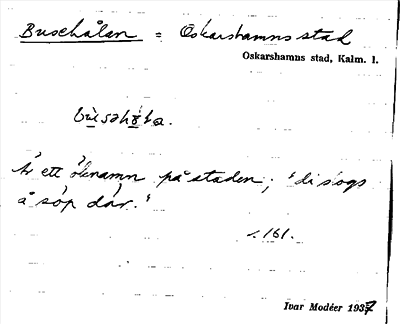 Busehålan = Oskarshamns stad
Oskarshamns stad, Kalm. l.
Är ett öknamn på staden; "di slogs
å söp där."
s. 161.
Ivar Modéer 1937